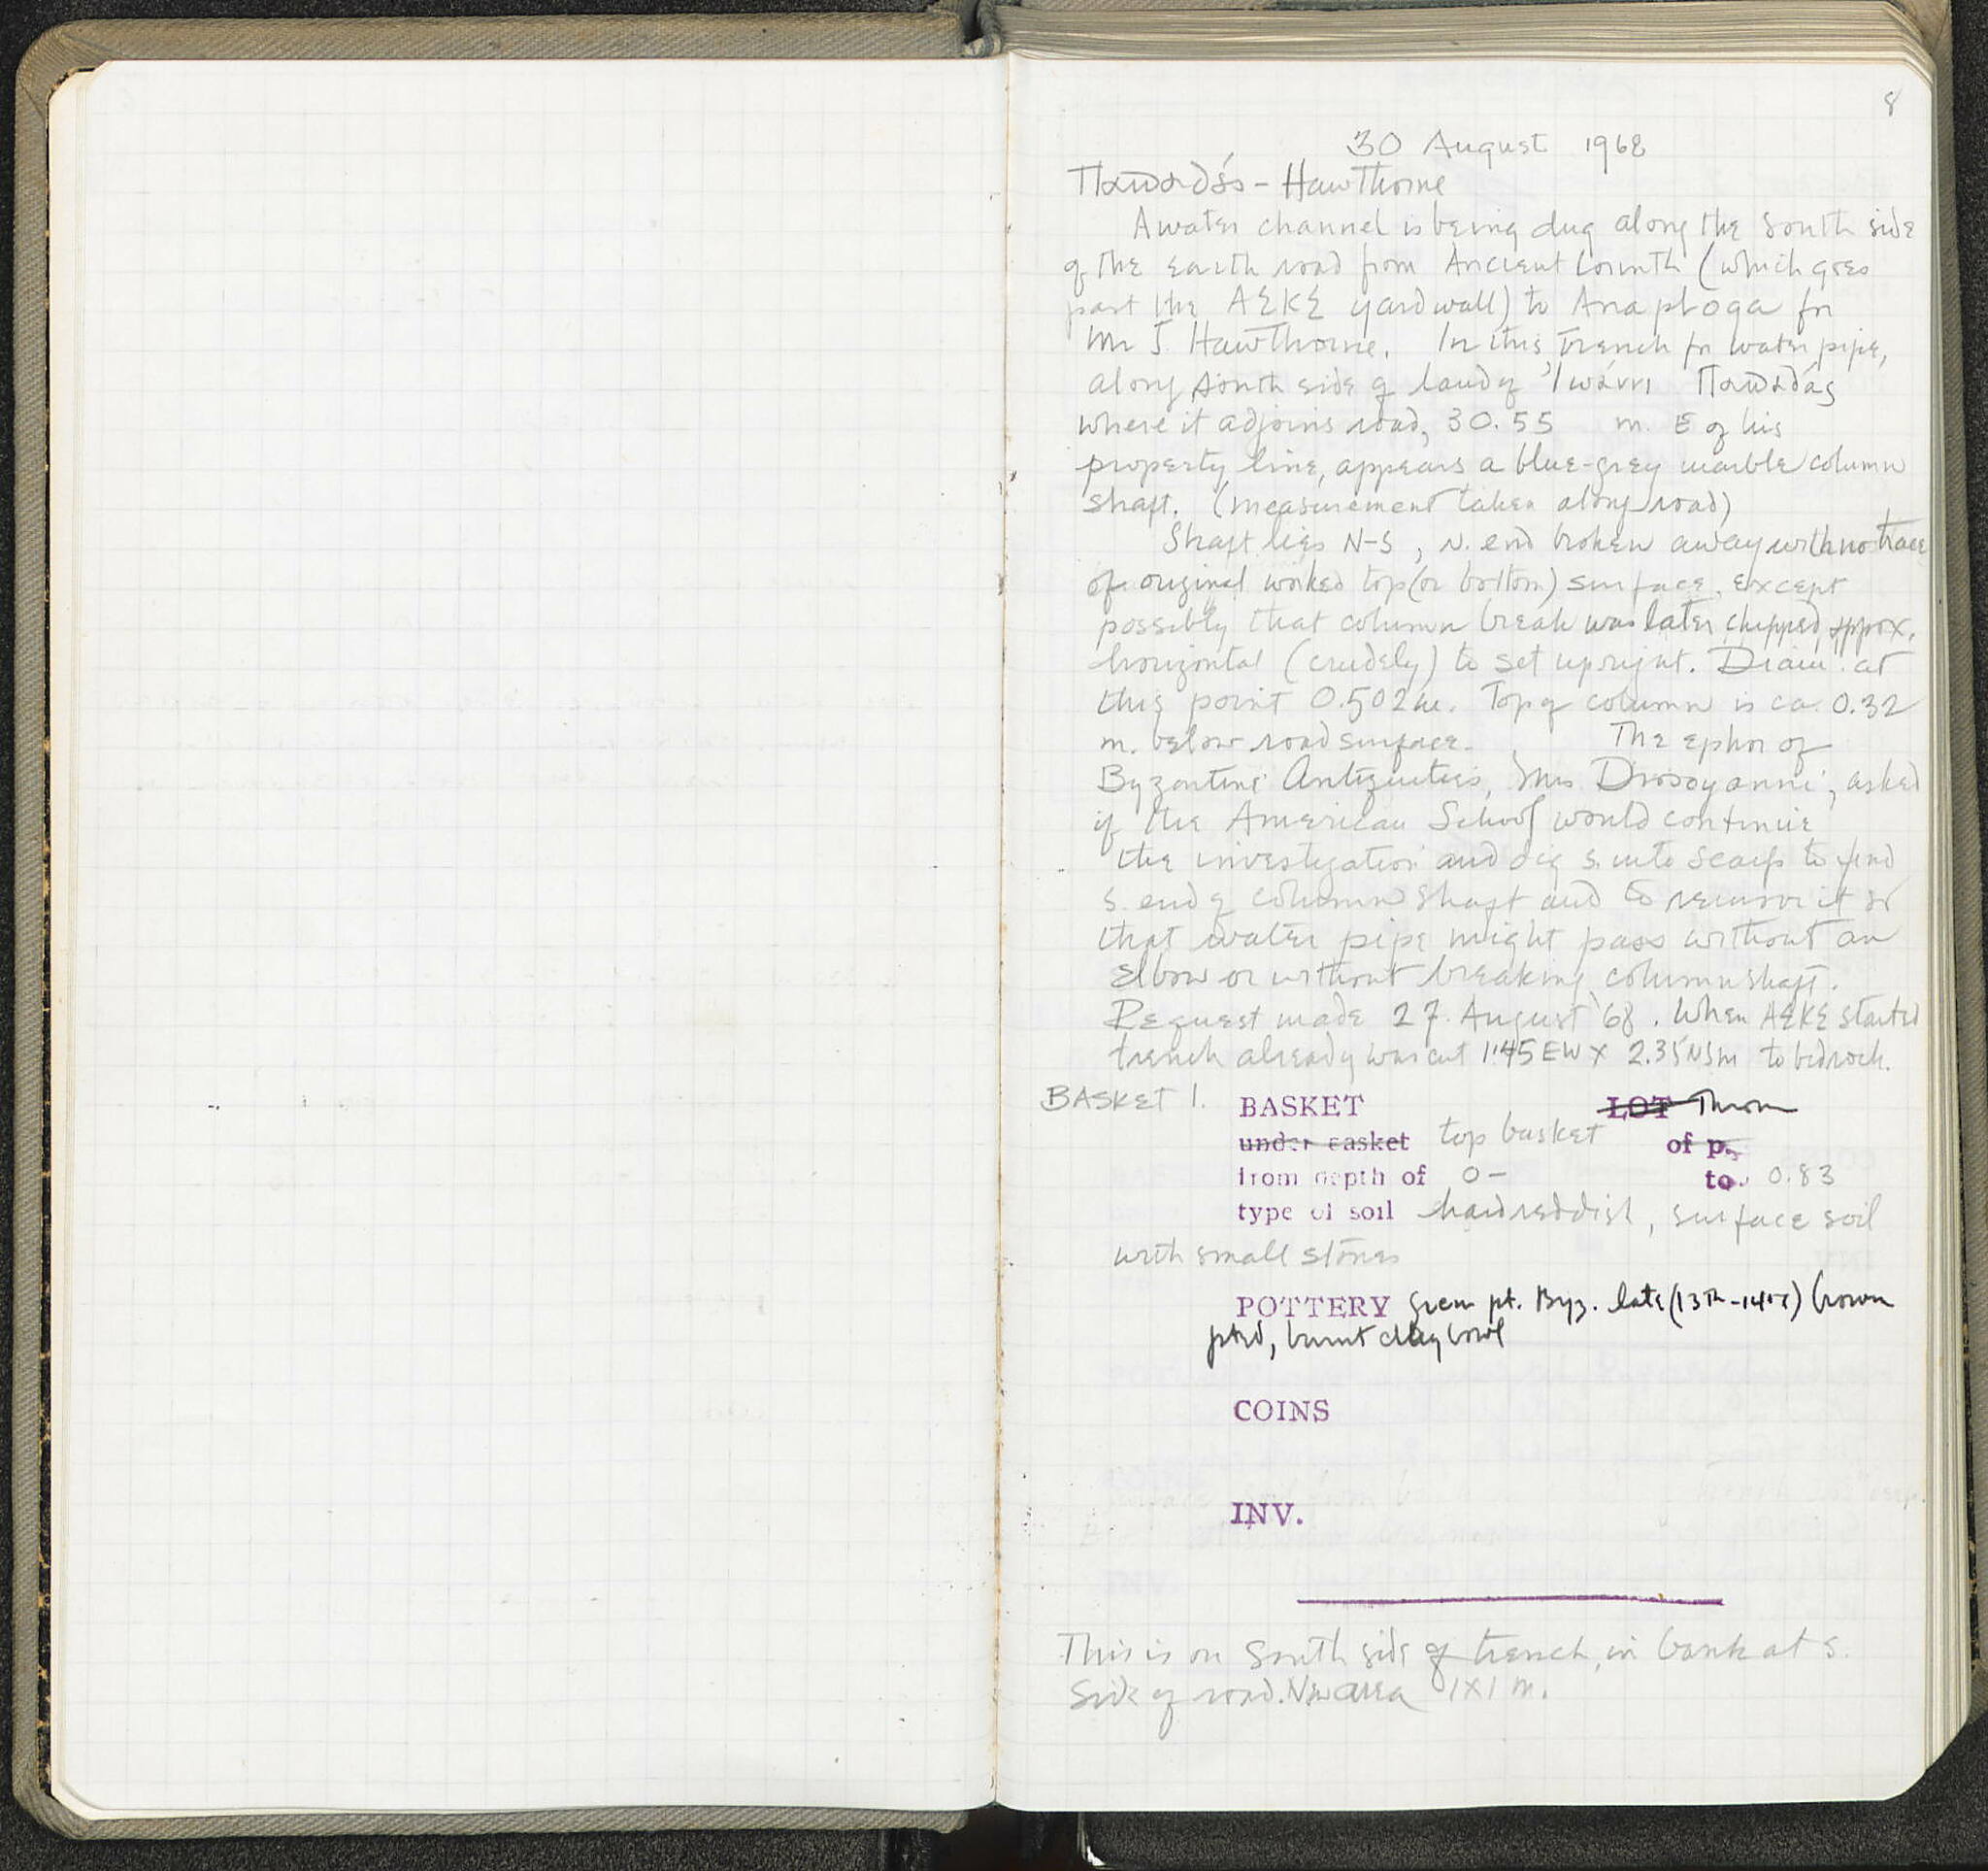 8
30 August 1968
Παπαδάς - Hawthorne
A water channel is being dug along the south side
of the earth road from Ancient Corinth (which goes
past the ΑΣΚΣ yard wall) to Anaploga for
Mr J. Hawthorne. In this trench for water pipe,
along south side of land of Ἰωάννι Παπαδάς
where it adjoins road, 30.55 m. E of his
property line, appears a blue-grey marble column
shaft. (measurement taken along road)
Shaft lies N-S, N. end broken away with no trace
of original worked top (or bottom) surface, except
possibly that column break was later chipped approx.
horizontal (crudely) to set upright. Diam. at
this point 0.502m. Top of column is ca. 0.32
m. below road surface. The ephor of
Byzantine Antiquities, Mrs Drosoyanni, asked
if the American School would continue
the investigation and dig s. into scarp to find
s. end of column shaft and to remove it so
that water pipe might pass without an
elbow or without breaking column shaft.
Request made 27 August '68. When ΑΣΚΣ started
trench already was cut 1.45 EW x 2.35 NS m to bedrock.
BASKET 1. BASKET LOT Thrown
under basket top basket of p.
from depth of 0- to 0.83
type of soil hard reddish, surface soil
with small stones
POTTERY green pt. Byz. late (13th-14th) brown
ptd, burnt clay bowl
COINS
INV.
This is on South side of trench, in bank at s.
side of road. New area 1x1 m.